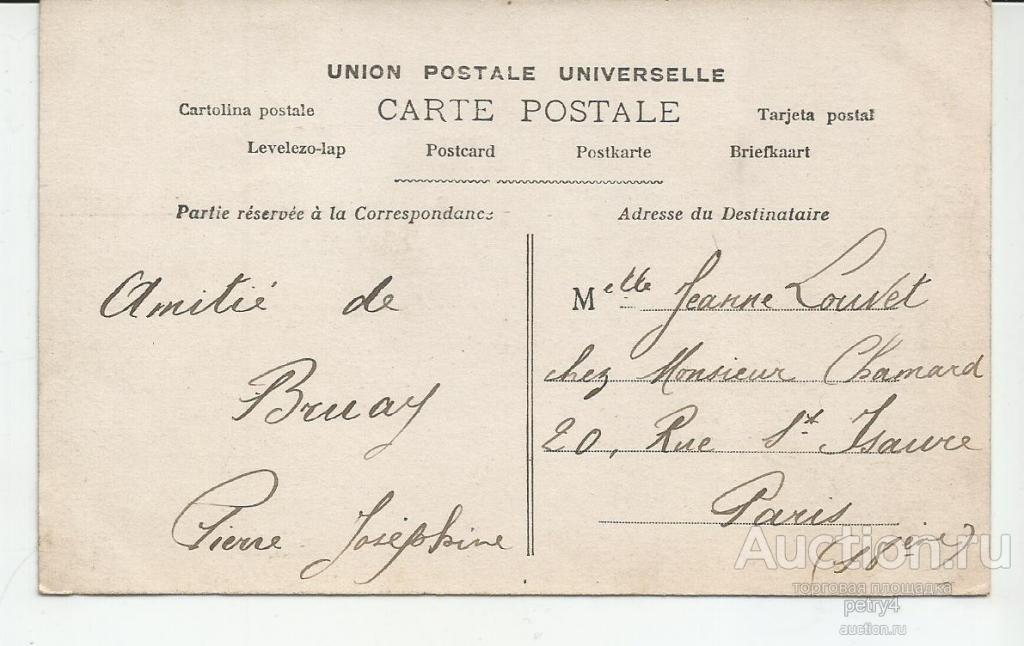 UNION POSTALE UNIVERSELLE
Cartolina postale CARTE POSTALE Tarjeta postal
Levelezo-lap Postcard Postkarte Briefkaart
Partie réservée à la Correspondance
Amitié de
Bruay
Pierre Joséphine
Adresse du Destinataire
Melle Jeanne Louvet
chez Monsieur Chamard
20, Rue St Isaure
Paris
Auction.ru
торговая площадка
petry4
auction.ru